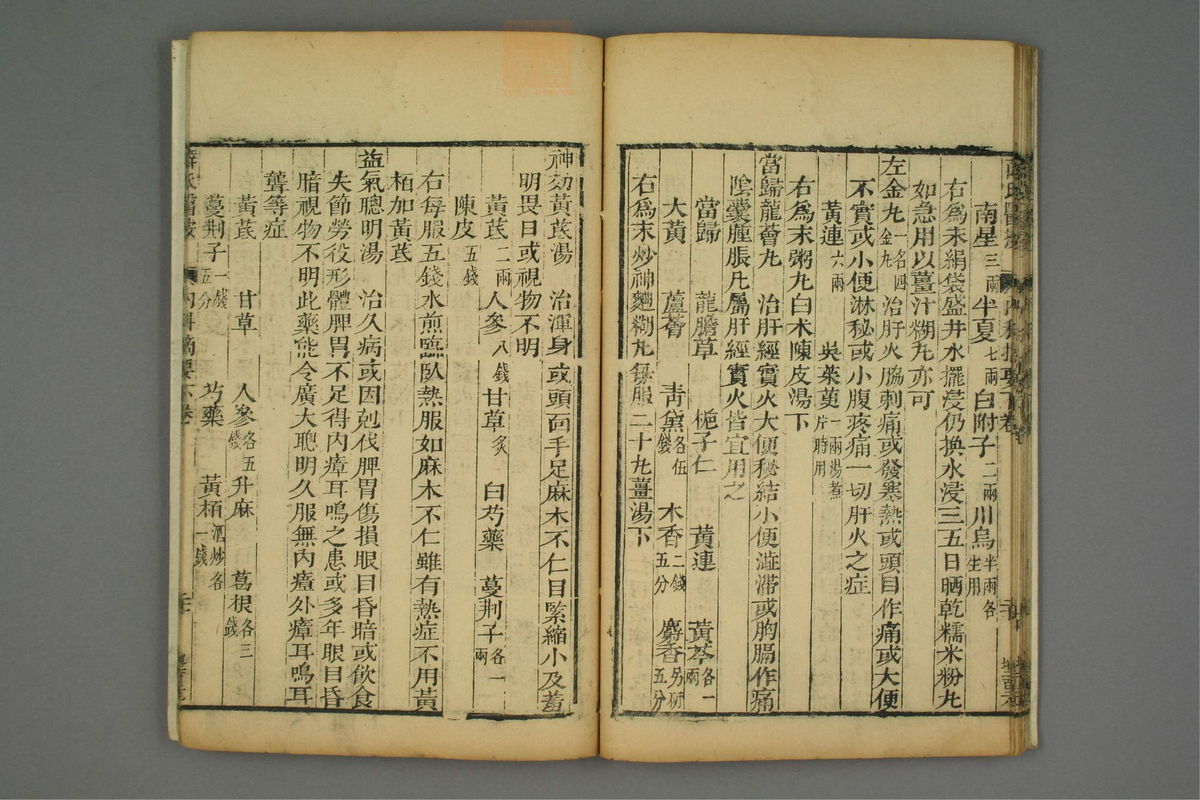 南星三兩 半夏七兩 白附子二兩 川烏半兩各生用
右爲末絹袋盛井水擺浸仍換水浸三五日晒乾糯米粉丸
如急用以薑汁糊丸亦可
左金丸一名四金丸 治肝火脇刺痛或發寒熱或頭目作痛或大便
不實或小便淋秘或小腹疼痛一切肝火之症
黃連六兩 吳茱萸一兩湯煮片時用
右爲末粥丸白术陳皮湯下
當歸龍薈丸 治肝經實火大便秘結小便澁滯或胸膈作痛
陰囊腫脹凡屬肝經實火皆宜用之
當歸 龍膽草 梔子仁 黃連 黃芩各一兩
大黃 蘆薈 靑黛各伍錢 木香二錢五分 麝香另研五分
右爲末炒神麯糊丸每服二十丸薑湯下
神効黃芪湯 治渾身或頭面手足麻木不仁目緊縮小及羞
明畏日或視物不明
黃芪二兩 人參八錢 甘草炙 白芍藥 蔓荆子各一兩
陳皮五錢
右每服五錢水煎臨臥熱服如麻木不仁雖有熱症不用黃
栢加黃芪
益氣聰明湯 治久病或因剋伐脾胃傷損眼目昏暗或飲食
失節勞役形體脾胃不足得內瘴耳鳴之患或多年眼目昏
暗視物不明此藥能令廣大聰明久服無內瘴外瘴耳鳴耳
聾等症
黃芪 甘草 人參各五錢 升麻 葛根各三錢
蔓荆子一錢五分 芍藥 黃栢酒炒各一錢
薛氏醫按 內科摘要下卷